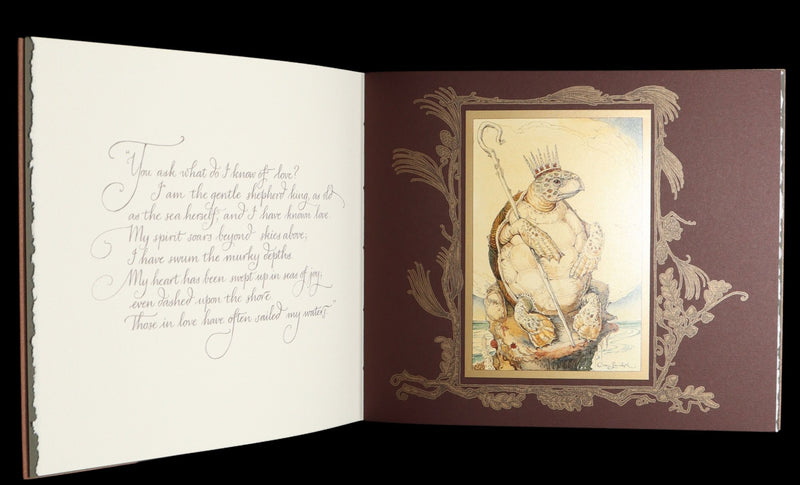 "You ask what do I know of love?
I am the gentle shepherd king, as old
as the sea herself; and I have known love.
My spirit soars beyond skies above;
I have swum the murky depths.
My heart has been swept up in seas of joy;
even dashed upon the shore.
Those in love have often sailed my waters."